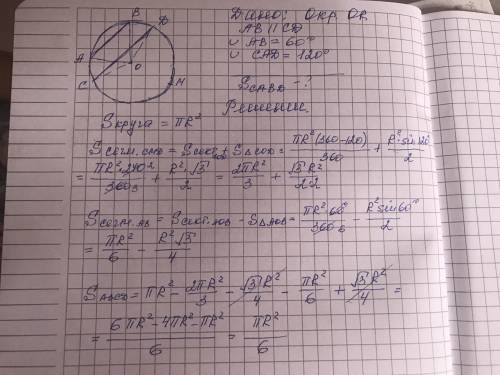 B
D
A
O
C
N
Дано: Окр. OR
AB || CD
∪ AB = 60°
∪ CAD = 120°
S CABD - ?
Решение.
Sкруга = πR²
Sсегм. CND = Sсект. + S△COD = πR²(360-120)/360 + R²·sin120°/2
= πR²·240 2/360 3 + R²·√3/2·2 = 2πR²/3 + √3R²/2·2
Sсегм. AB = Sсект. AOB - S△AOB = πR²·60°/360 6 - R²sin60°/2
= πR²/6 - R²√3/4
SABCD = πR² - 2πR²/3 - √3R²/4 - πR²/6 + √3R²/4 =
= 6πR²-4πR²-πR²/6 = πR²/6